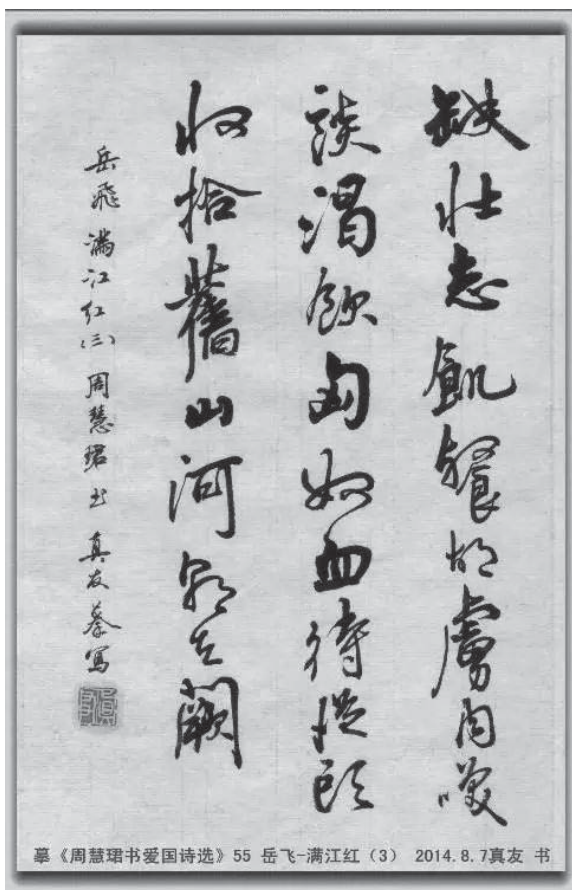 缺壮志飢餐胡虜肉咲
談渴飲匈奴血待從頭
收拾舊山河朝天闕
岳飛满江红（三）周慧珺书 真友摹寫
摹《周慧珺书爱国诗选》55 岳飞-满江红（3） 2014.8.7真友 书